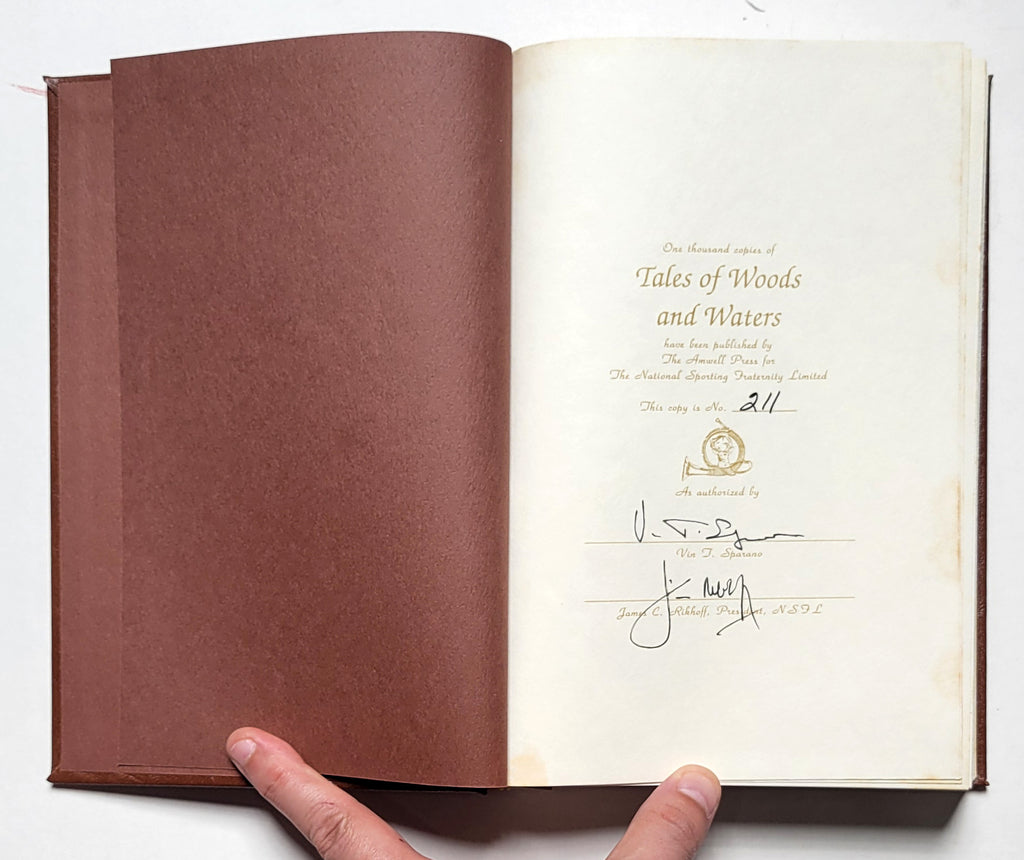 One thousand copies of
Tales of Woods
and Waters
have been published by
The Amwell Press for
The National Sporting Fraternity Limited
This copy is No. 211
As authorized by
V. T. Sparano
Vin T. Sparano
James C. Rikhoff, President, NSFL